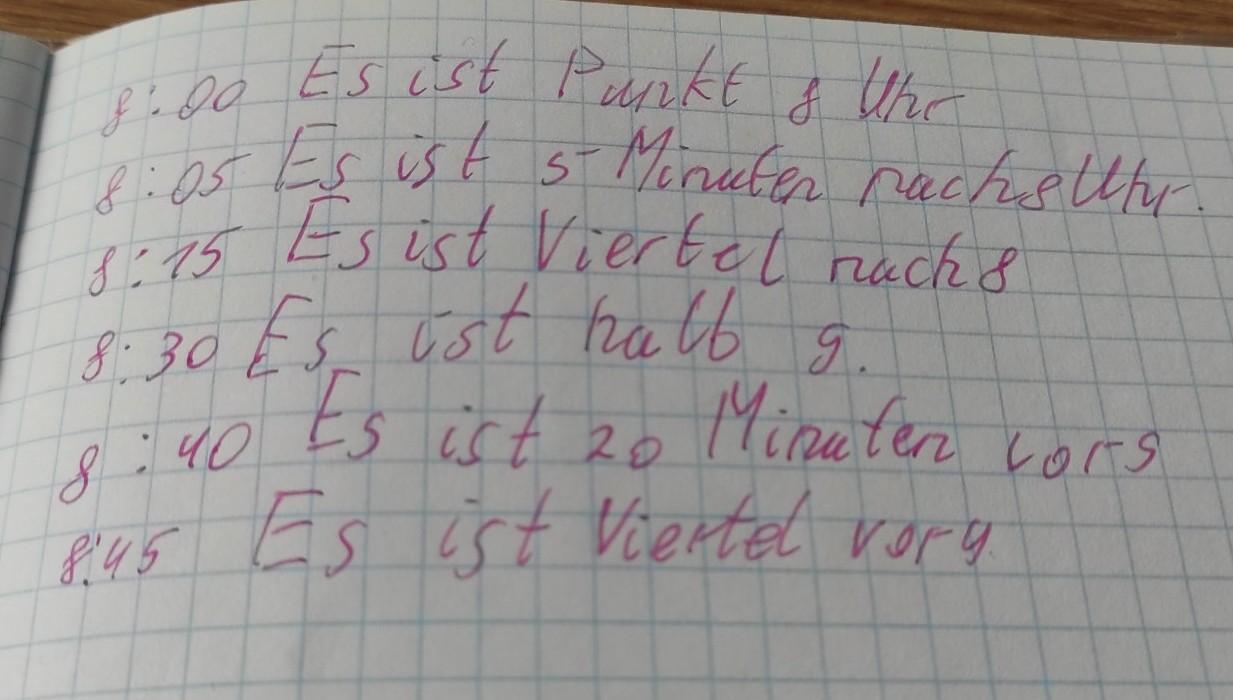 8:00 Es ist Punkt 8 Uhr
8:05 Es ist 5 Minuten nach 8 Uhr.
8:15 Es ist Viertel nach 8
8:30 Es ist halb 9.
8:40 Es ist 20 Minuten vor 9
8:45 Es ist Viertel vor 9